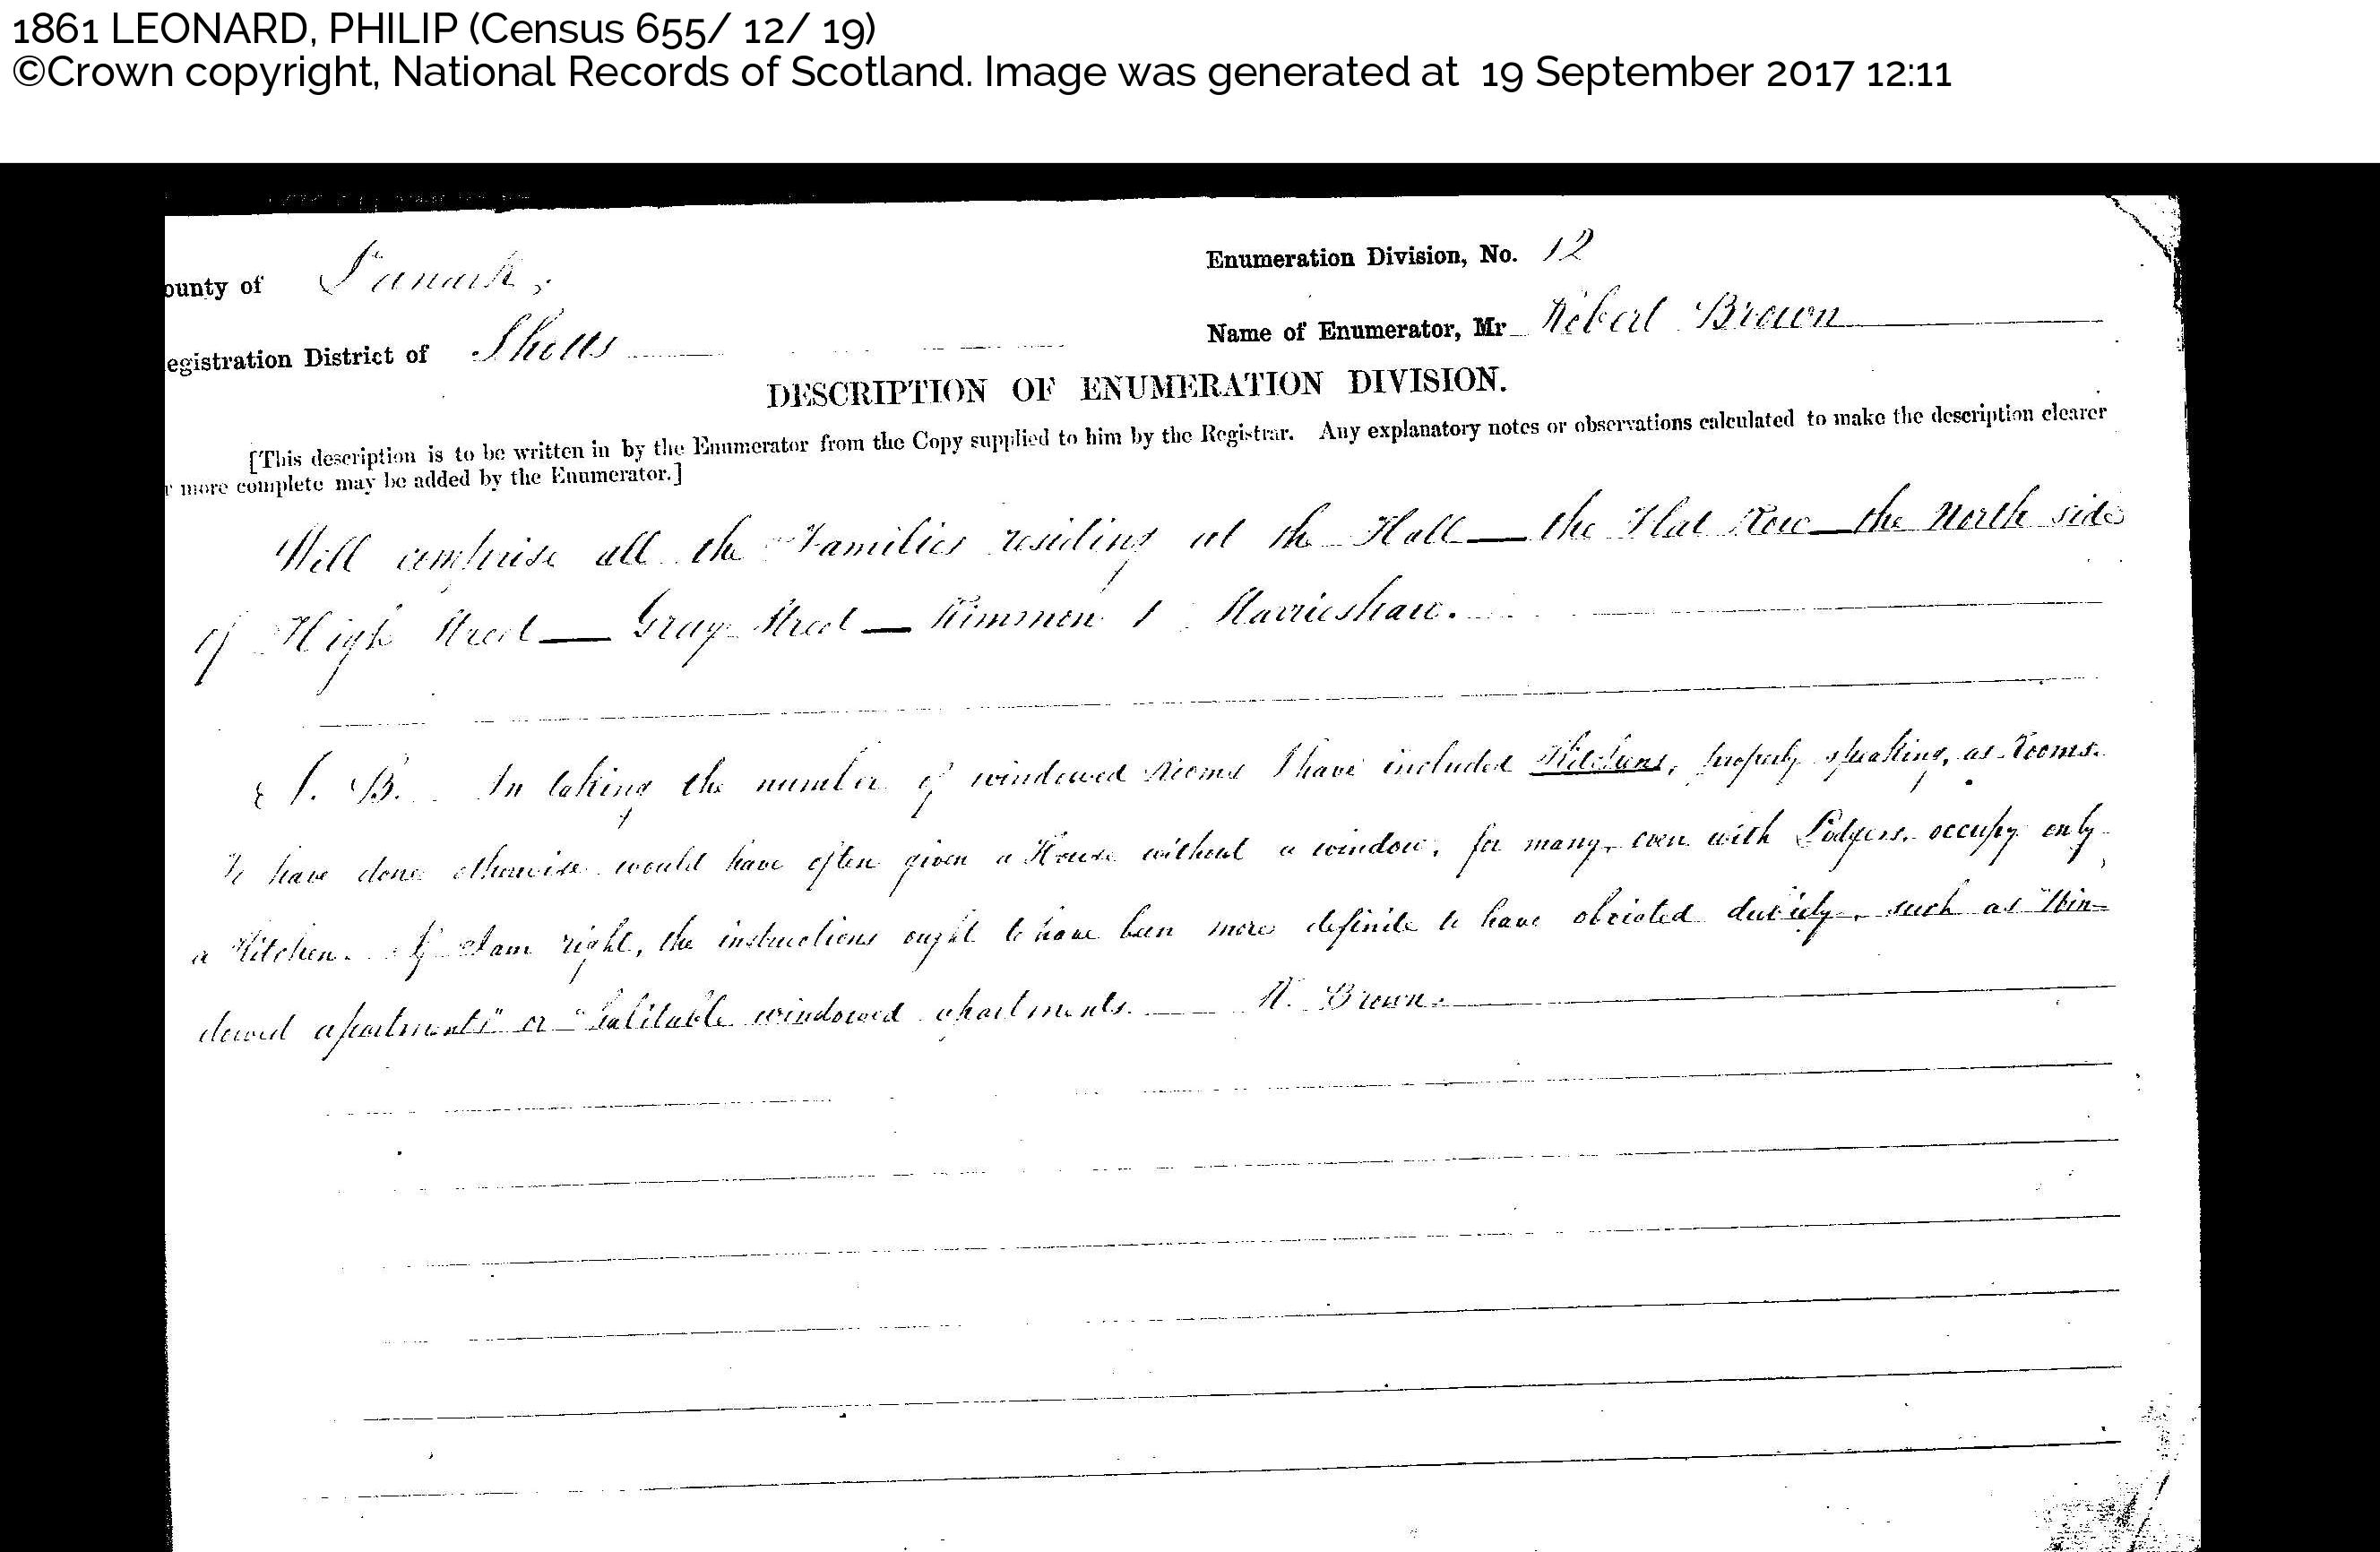 1861 LEONARD, PHILIP (Census 655/ 12/ 19)
©Crown copyright, National Records of Scotland. Image was generated at 19 September 2017 12:11
ounty of Lanark,
Enumeration Division, No. 12
egistration District of Shotts
Name of Enumerator, Mr Robert Brown
DESCRIPTION OF ENUMERATION DIVISION.
[This description is to be written in by the Enumerator from the Copy supplied to him by the Registrar. Any explanatory notes or observations calculated to make the description clearer
r more complete may be added by the Enumerator.]
Will comprise all the Families residing at the Hall — the Flat Row — the North side
of High Street — Gray Street — &
N. B. In taking the number of windowed Rooms I have included Kitchens, properly speaking, as Rooms.
To have done otherwise would have often given a House without a window, for many, even with Lodgers, occupy only
a Kitchen. If I am right, the instructions ought to have been more definite to have obviated dubiety, such as "Win-
dowed apartments" or "habitable windowed apartments. R. Brown.